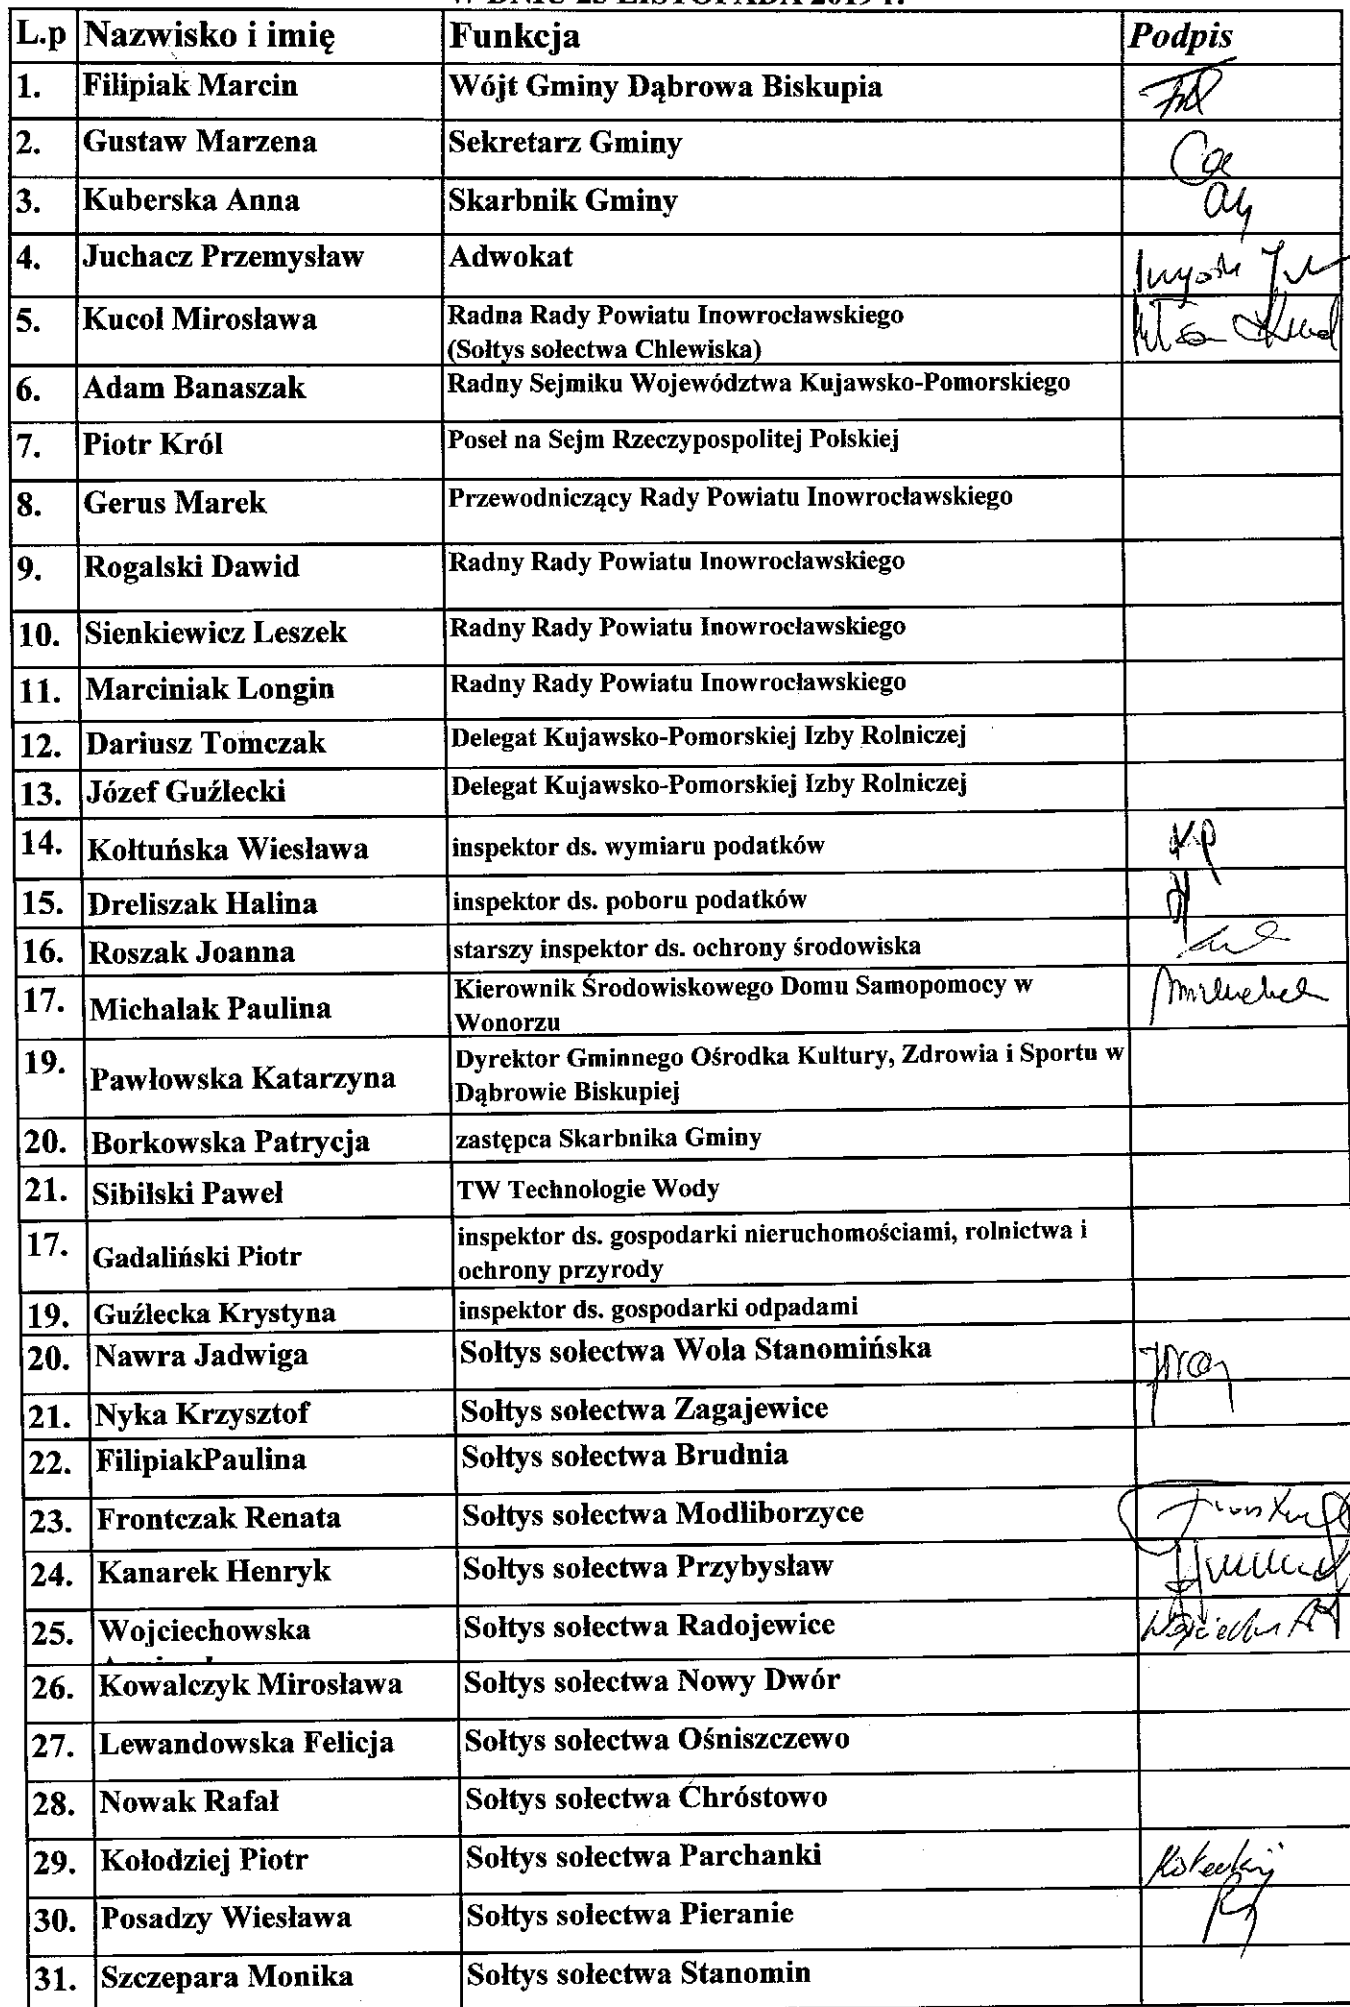 W DNIU 28 LISTOPADA 2019 r.
L.p Nazwisko i imię Funkcja Podpis
1. Filipiak Marcin Wójt Gminy Dąbrowa Biskupia
2. Gustaw Marzena Sekretarz Gminy
3. Kuberska Anna Skarbnik Gminy
4. Juchacz Przemysław Adwokat
5. Kucol Mirosława Radna Rady Powiatu Inowrocławskiego
(Sołtys sołectwa Chlewiska)
6. Adam Banaszak Radny Sejmiku Województwa Kujawsko-Pomorskiego
7. Piotr Król Poseł na Sejm Rzeczypospolitej Polskiej
8. Gerus Marek Przewodniczący Rady Powiatu Inowrocławskiego
9. Rogalski Dawid Radny Rady Powiatu Inowrocławskiego
10. Sienkiewicz Leszek Radny Rady Powiatu Inowrocławskiego
11. Marciniak Longin Radny Rady Powiatu Inowrocławskiego
12. Dariusz Tomczak Delegat Kujawsko-Pomorskiej Izby Rolniczej
13. Józef Guźlecki Delegat Kujawsko-Pomorskiej Izby Rolniczej
14. Kołtuńska Wiesława inspektor ds. wymiaru podatków
15. Dreliszak Halina inspektor ds. poboru podatków
16. Roszak Joanna starszy inspektor ds. ochrony środowiska
17. Michalak Paulina Kierownik Środowiskowego Domu Samopomocy w
Wonorzu
19. Pawłowska Katarzyna Dyrektor Gminnego Ośrodka Kultury, Zdrowia i Sportu w
Dąbrowie Biskupiej
20. Borkowska Patrycja zastępca Skarbnika Gminy
21. Sibilski Paweł TW Technologie Wody
17. Gadaliński Piotr inspektor ds. gospodarki nieruchomościami, rolnictwa i
ochrony przyrody
19. Guźlecka Krystyna inspektor ds. gospodarki odpadami
20. Nawra Jadwiga Sołtys sołectwa Wola Stanomińska
21. Nyka Krzysztof Sołtys sołectwa Zagajewice
22. FilipiakPaulina Sołtys sołectwa Brudnia
23. Frontczak Renata Sołtys sołectwa Modliborzyce
24. Kanarek Henryk Sołtys sołectwa Przybysław
25. Wojciechowska Sołtys sołectwa Radojewice
26. Kowalczyk Mirosława Sołtys sołectwa Nowy Dwór
27. Lewandowska Felicja Sołtys sołectwa Ośniszczewo
28. Nowak Rafał Sołtys sołectwa Chróstowo
29. Kołodziej Piotr Sołtys sołectwa Parchanki
30. Posadzy Wiesława Sołtys sołectwa Pieranie
31. Szczepara Monika Sołtys sołectwa Stanomin